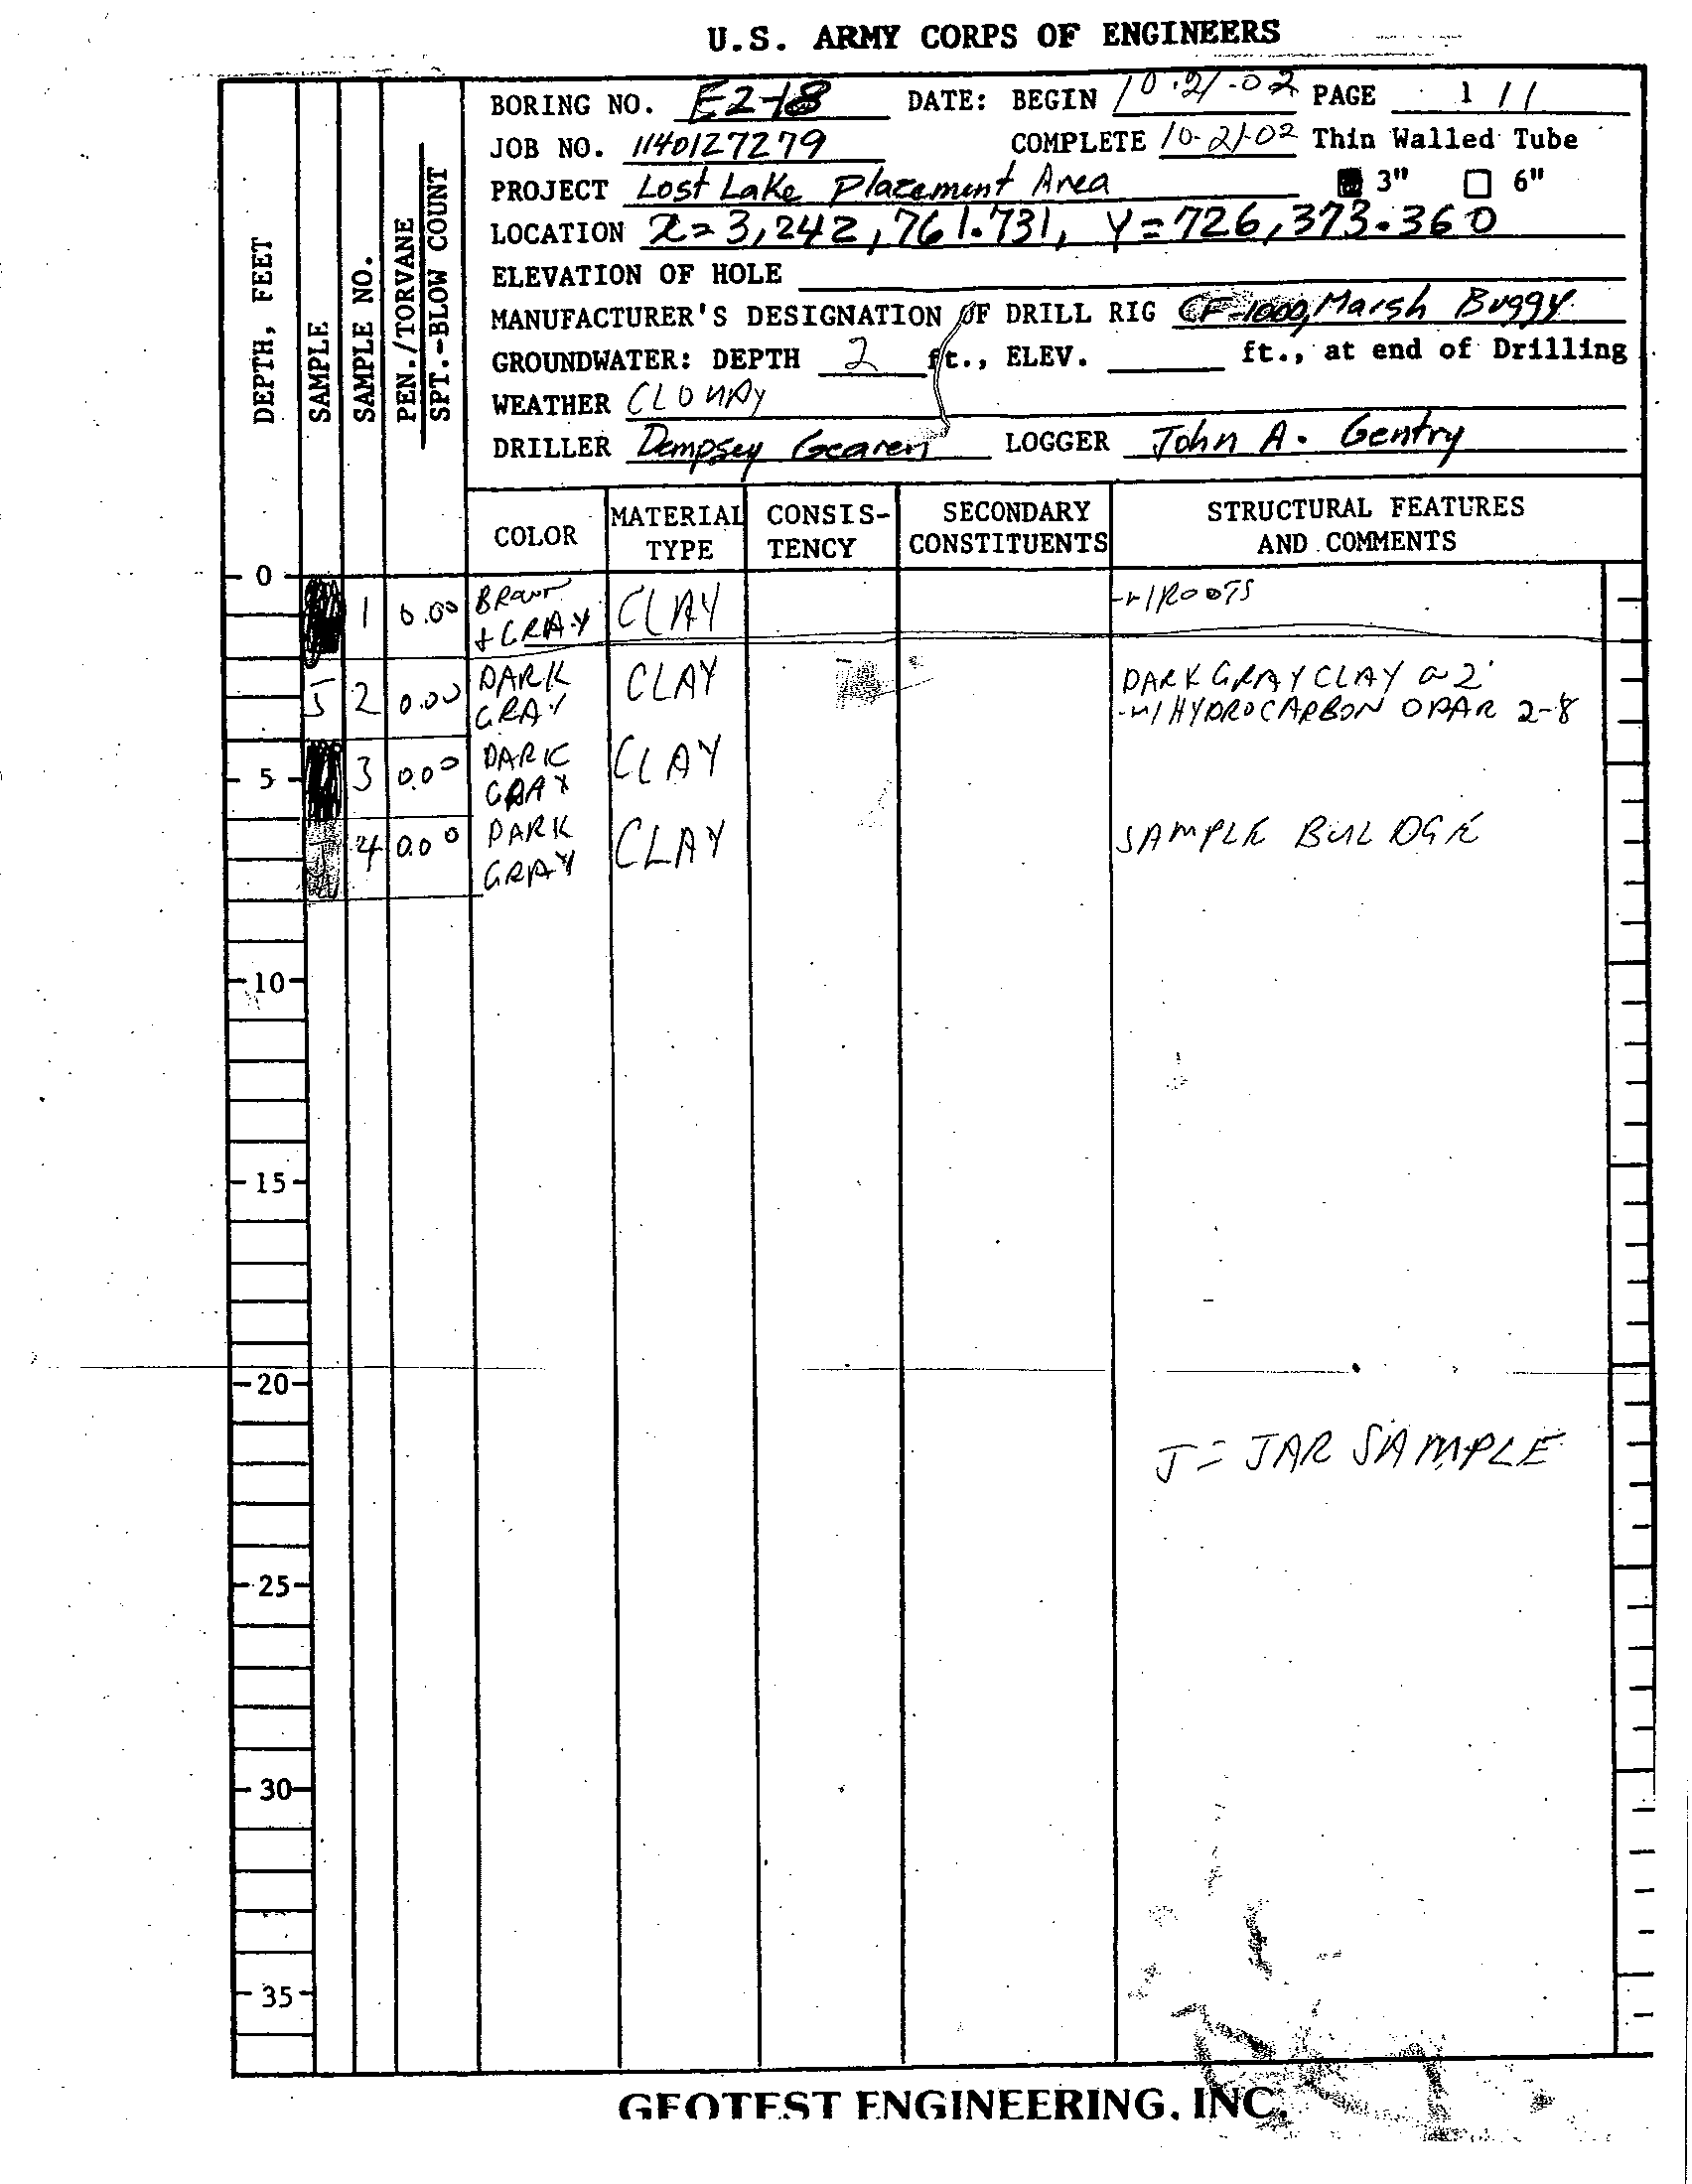 U.S. ARMY CORPS OF ENGINEERS
BORING NO. E2-18 DATE: BEGIN 10-21-02 PAGE 1 / 1
JOB NO. 1140127279 COMPLETE 10-21-02 Thin Walled Tube
PROJECT Lost Lake Placement Area 3" 6"
LOCATION X=3,242,761.731, Y=726,373.360
ELEVATION OF HOLE
MANUFACTURER'S DESIGNATION OF DRILL RIG CF-1000, Marsh Buggy
GROUNDWATER: DEPTH 2 ft., ELEV. ft., at end of Drilling
WEATHER CLOUDY
DRILLER Dempsey Gearen LOGGER John A. Gentry
DEPTH, FEET
SAMPLE
SAMPLE NO.
PEN./TORVANE
SPT.-BLOW COUNT
COLOR
MATERIAL
TYPE
CONSIS-
TENCY
SECONDARY
CONSTITUENTS
STRUCTURAL FEATURES
AND COMMENTS
0
1 0.00 BROWN CLAY -w/ROOTS
+ GRAY
J 2 0.00 DARK CLAY DARK GRAY CLAY @ 2'
GRAY -w/HYDROCARBON ODAR 2-8
5 3 0.00 DARK CLAY
GRAY
4 0.00 DARK CLAY SAMPLE BULDGE
GRAY
10
15
20
J = JAR SAMPLE
25
30
35
GEOTEST ENGINEERING, INC.